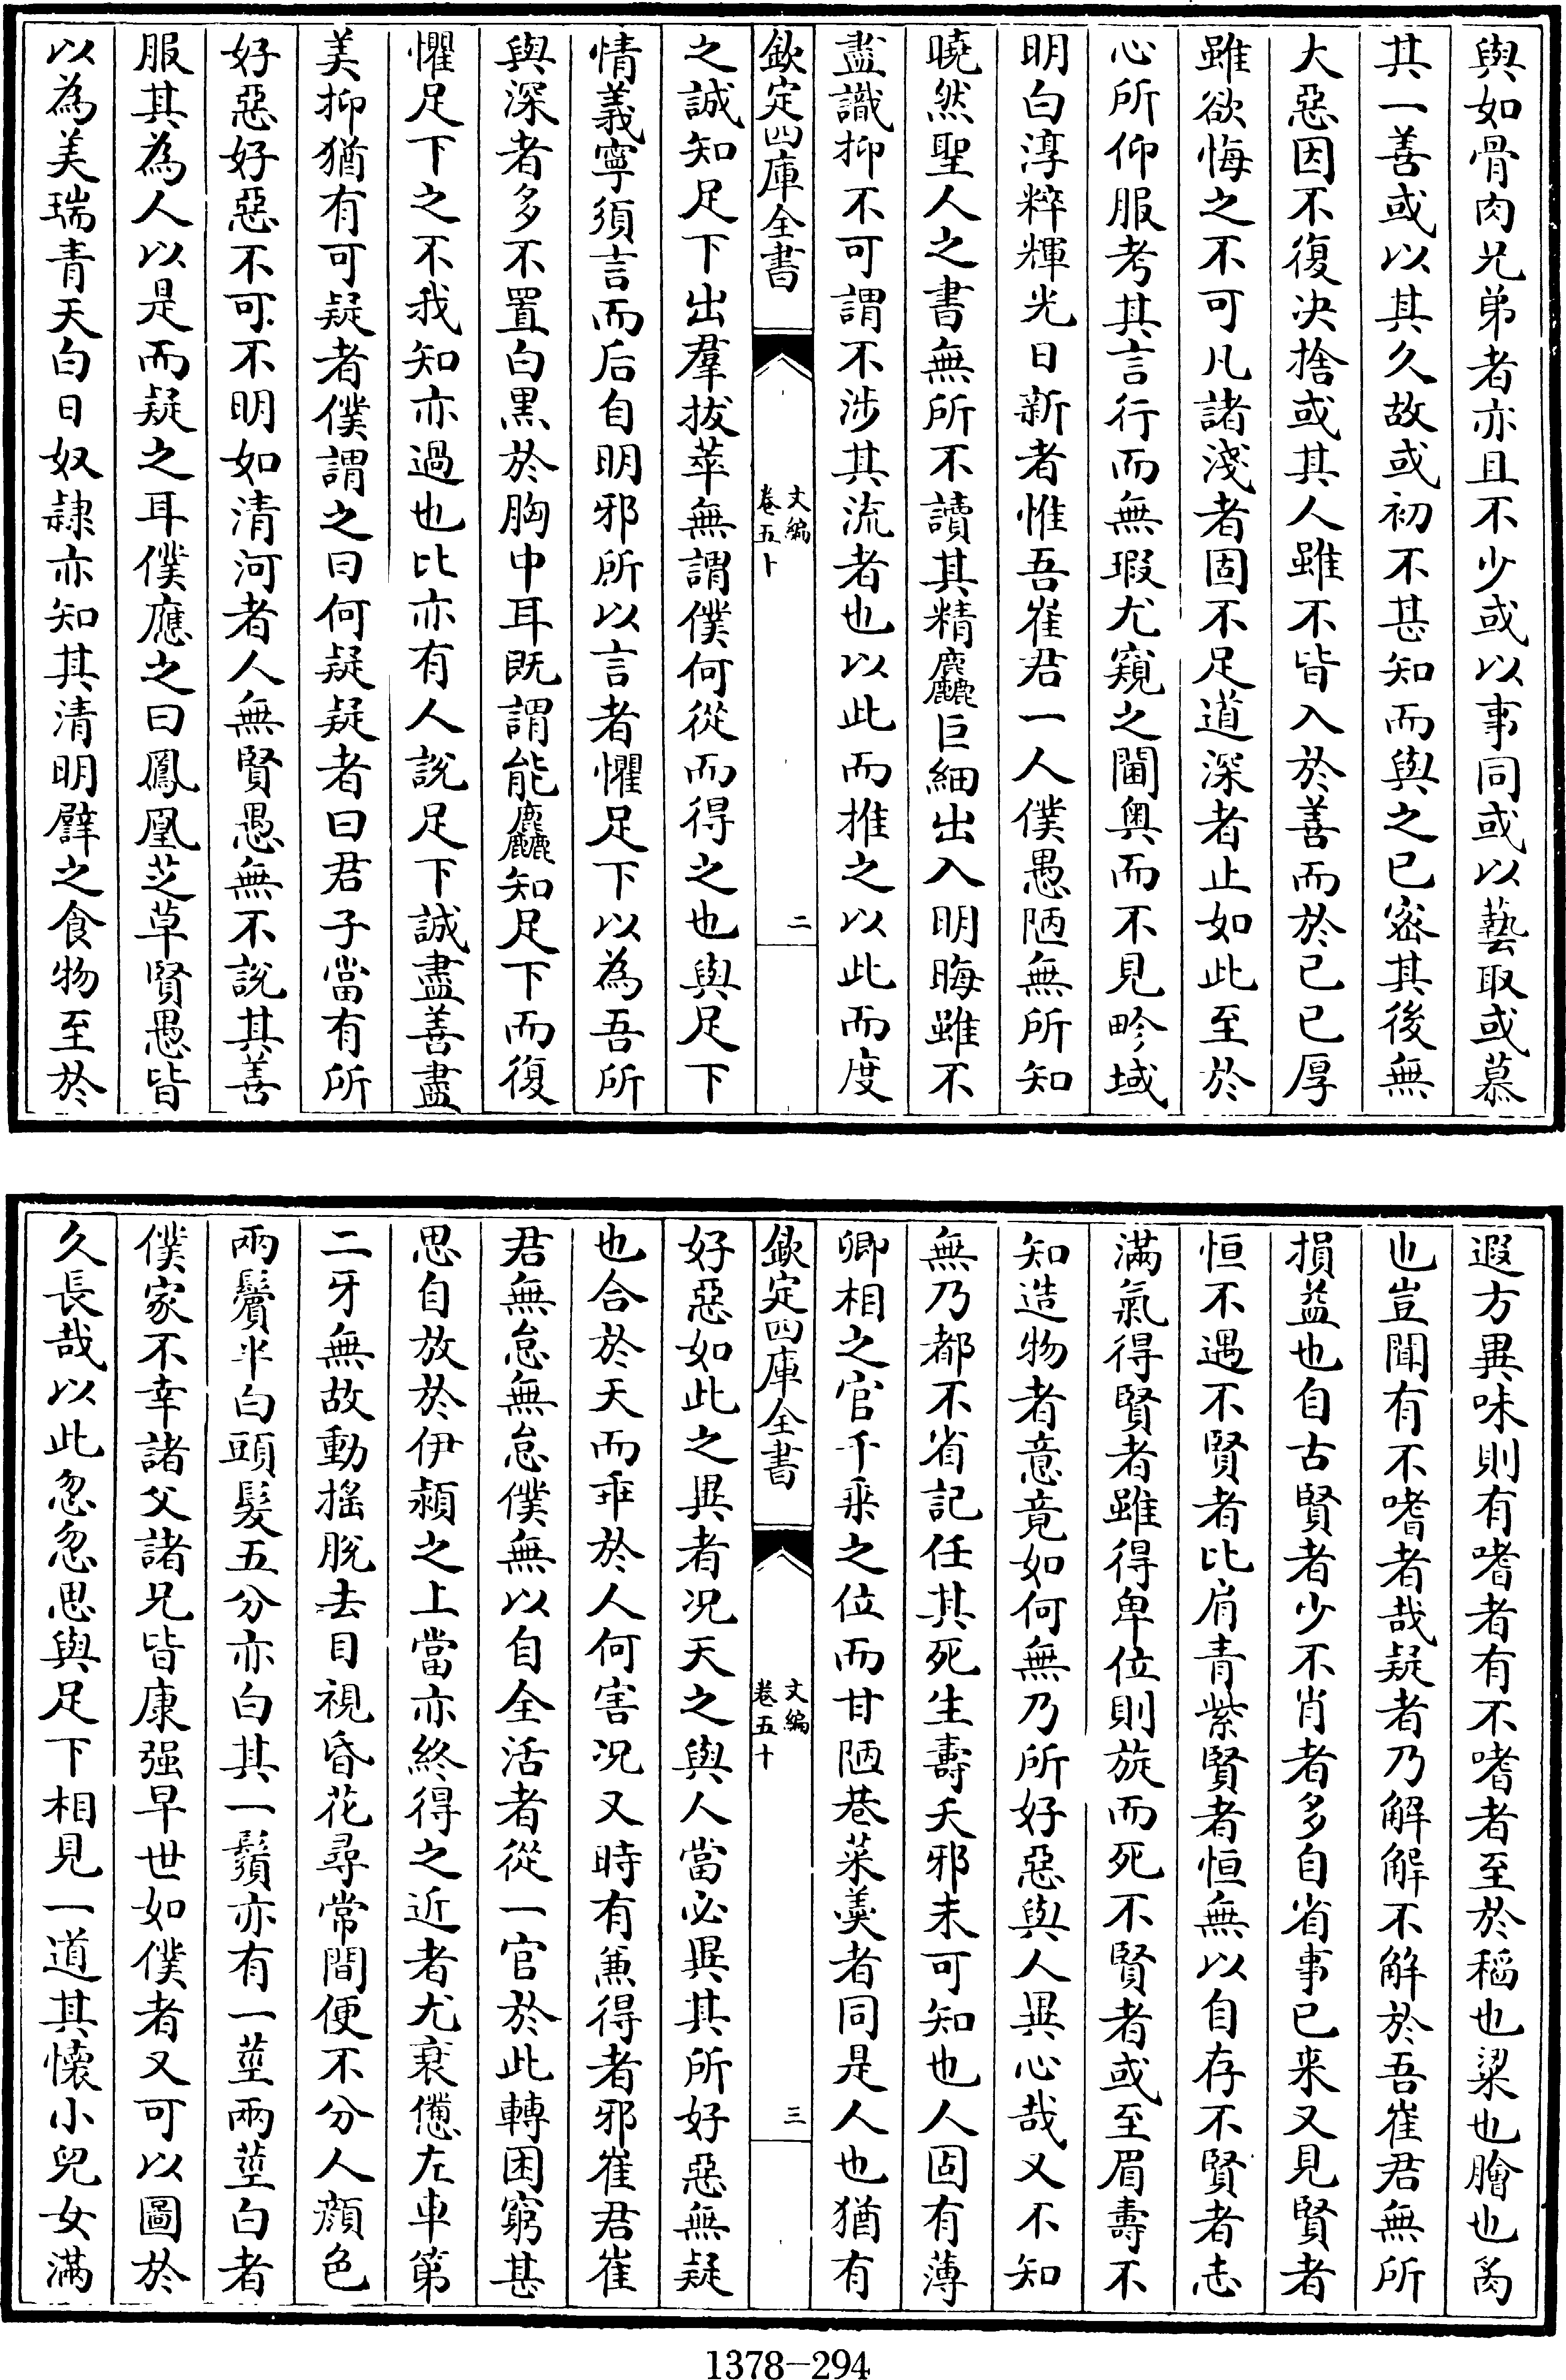 與如骨肉兄弟者亦且不少或以事同或以藝取或慕
其一善或以其久故或初不甚知而與之已密其後無
大惡因不復决捨或其人雖不皆入於善而於已已厚
雖欲悔之不可凡諸淺者固不足道深者止如此至於
心所仰服考其言行而無瑕尤窺之閫奥而不見畛域
明白淳粹輝光日新者惟吾崔君一人僕愚陋無所知
曉然聖人之書無所不讀其精麤巨細出入明晦雖不
盡識抑不可謂不涉其流者也以此而推之以此而度
欽定四庫全書
文編
卷五十
二
之誠知足下出羣拔萃無謂僕何從而得之也與足下
情義寧須言而后自明邪所以言者懼足下以為吾所
與深者多不置白黒於胸中耳既謂能麤知足下而復
懼足下之不我知亦過也比亦有人說足下誠盡善盡
美抑猶有可疑者僕謂之曰何疑疑者曰君子當有所
好惡好惡不可不明如清河者人無賢愚無不說其善
服其為人以是而疑之耳僕應之曰鳳凰芝草賢愚皆
以為美瑞青天白日奴隸亦知其清明譬之食物至於
遐方異味則有嗜者有不嗜者至於稻也粱也膾也炙
也豈聞有不嗜者哉疑者乃解解不解於吾崔君無所
損益也自古賢者少不肖者多自省事已来又見賢者
恒不遇不賢者比肩青紫賢者恒無以自存不賢者志
滿氣得賢者雖得卑位則旋而死不賢者或至眉壽不
知造物者意竟如何無乃所好惡與人異心哉又不知
無乃都不省記任其死生壽夭邪未可知也人固有薄
卿相之官千乗之位而甘陋巷菜羮者同是人也猶有
欽定四庫全書
文編
卷五十
三
好惡如此之異者况天之與人當必異其所好惡無疑
也合於天而乖於人何害况又時有兼得者邪崔君崔
君無怠無怠僕無以自全活者從一官於此轉困窮甚
思自放於伊潁之上當亦終得之近者尤衰憊左車第
二牙無故動摇脱去目視昏花尋常間便不分人顔色
兩鬢半白頭髮五分亦白其一鬚亦有一莖兩莖白者
僕家不幸諸父諸兄皆康强早世如僕者又可以圖於
久長哉以此忽忽思與足下相見一道其懷小兒女滿
1378-294